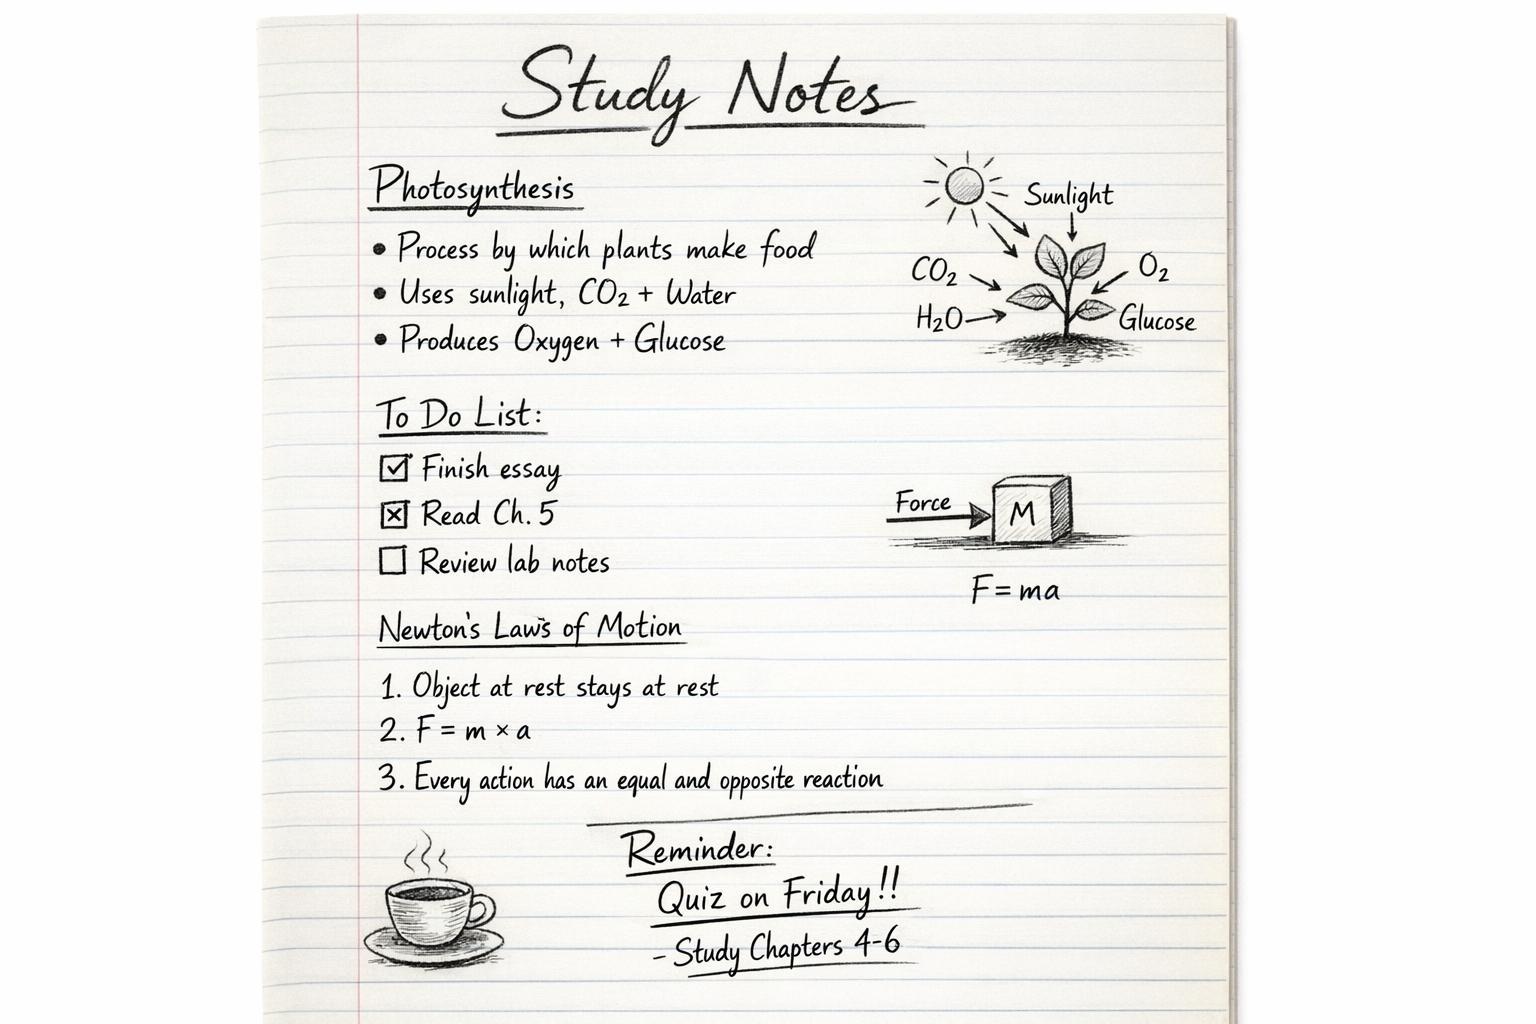 Study Notes
Photosynthesis
• Process by which plants make food
• Uses sunlight, CO₂ + Water
• Produces Oxygen + Glucose
Sunlight
CO₂
O₂
H₂O
Glucose
To Do List:
☑ Finish essay
☒ Read Ch. 5
☐ Review lab notes
Force
M
F = ma
Newton's Law's of Motion
1. Object at rest stays at rest
2. F = m × a
3. Every action has an equal and opposite reaction
Reminder:
Quiz on Friday!!
- Study Chapters 4-6